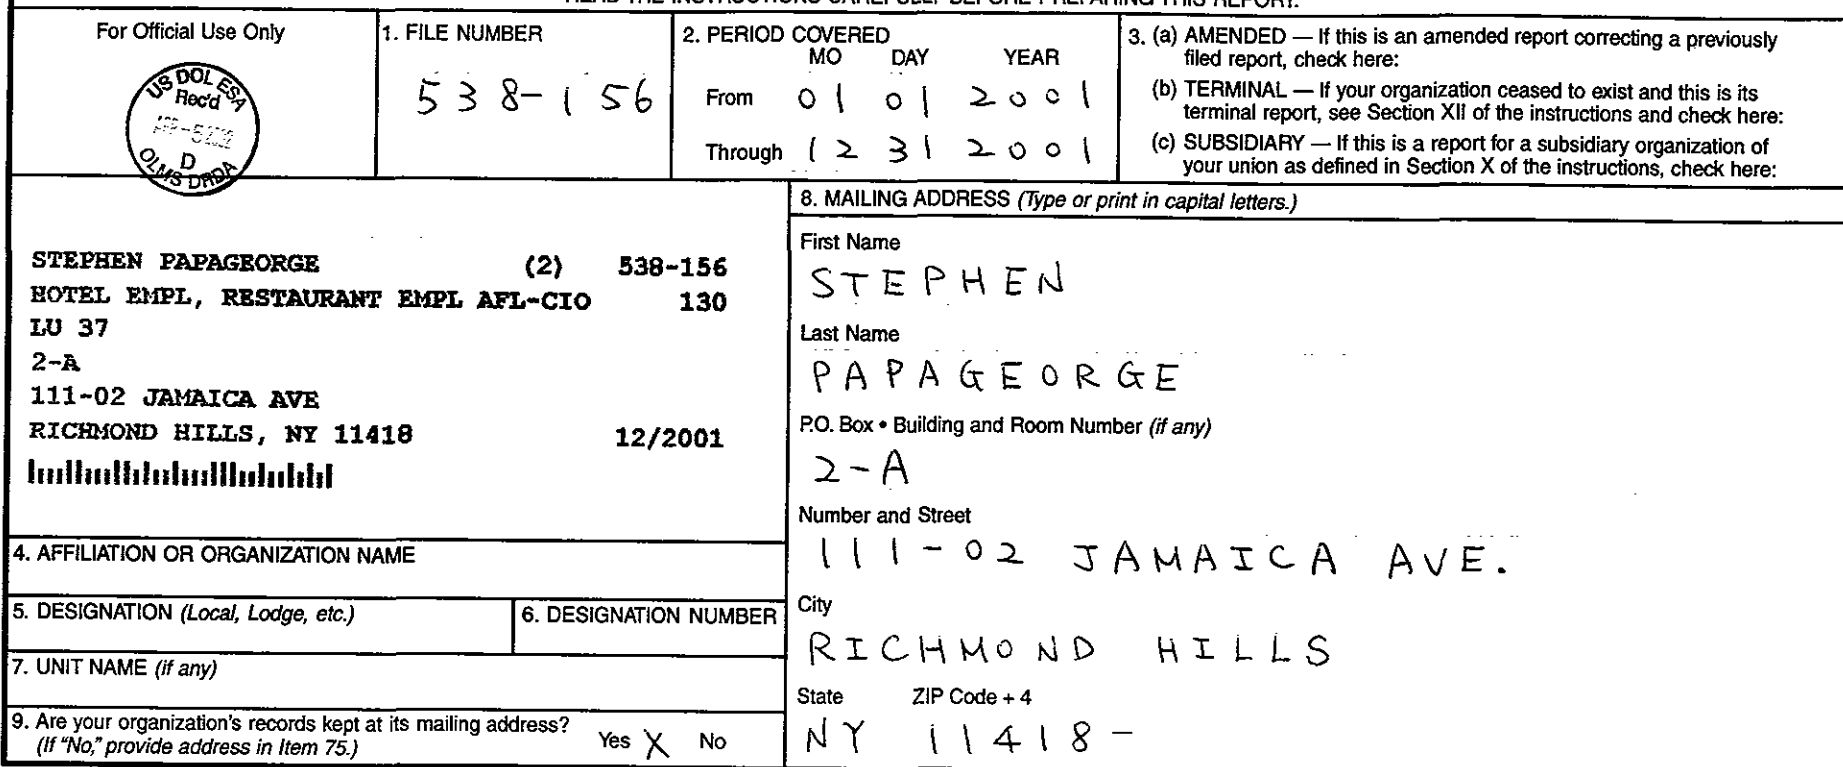 READ THE INSTRUCTIONS CAREFULLY BEFORE PREPARING THIS REPORT.
For Official Use Only
US DOL ESA
Rec'd
D
OLMS DRDA
1. FILE NUMBER
538-156
2. PERIOD COVERED
MO DAY YEAR
From 01 01 2001
Through 12 31 2001
3. (a) AMENDED — If this is an amended report correcting a previously
filed report, check here:
(b) TERMINAL — If your organization ceased to exist and this is its
terminal report, see Section XII of the instructions and check here:
(c) SUBSIDIARY — If this is a report for a subsidiary organization of
your union as defined in Section X of the instructions, check here:
STEPHEN PAPAGEORGE (2) 538-156
HOTEL EMPL, RESTAURANT EMPL AFL-CIO 130
LU 37
2-A
111-02 JAMAICA AVE
RICHMOND HILLS, NY 11418 12/2001
4. AFFILIATION OR ORGANIZATION NAME
5. DESIGNATION (Local, Lodge, etc.)
6. DESIGNATION NUMBER
7. UNIT NAME (if any)
9. Are your organization's records kept at its mailing address?
(If "No," provide address in Item 75.) Yes X No
8. MAILING ADDRESS (Type or print in capital letters.)
First Name
STEPHEN
Last Name
PAPAGEORGE
P.O. Box • Building and Room Number (if any)
2-A
Number and Street
111-02 JAMAICA AVE.
City
RICHMOND HILLS
State ZIP Code + 4
NY 11418-